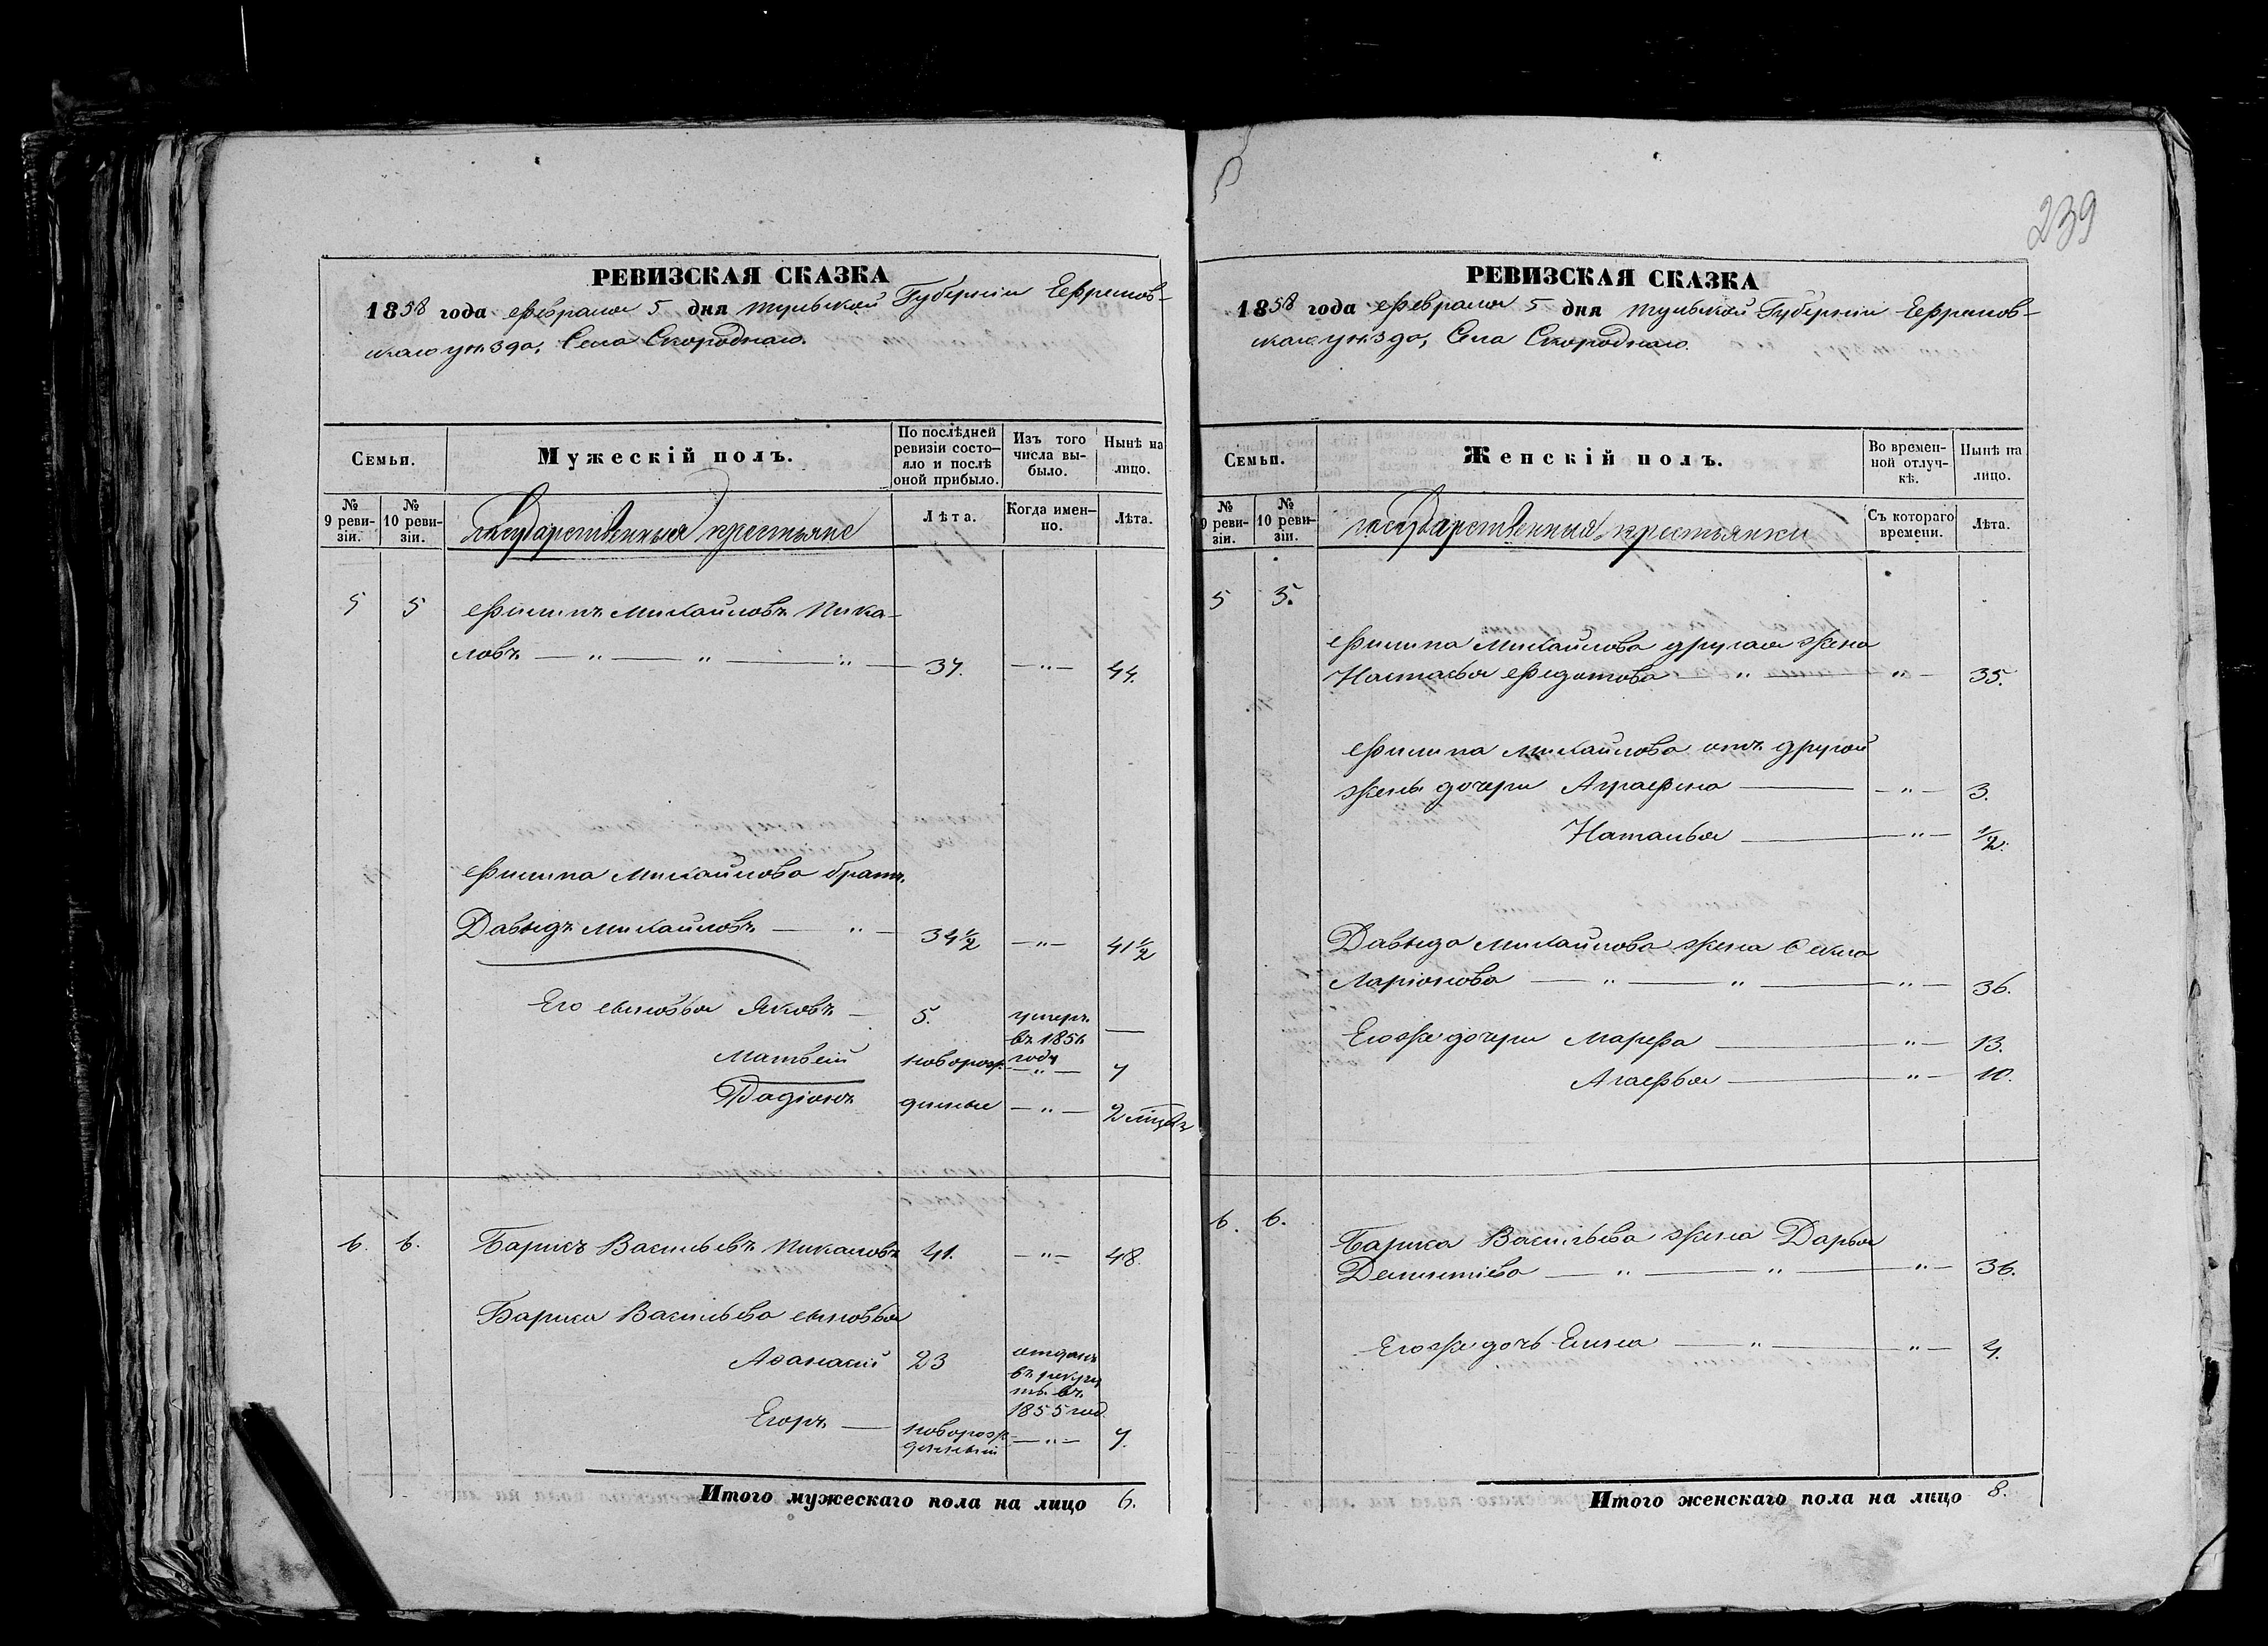 239
РЕВИЗСКАЯ СКАЗКА
1858 года Февраля 5 дня Тульской Губерніи Ефремов-
скаго уѣзда, Села Скороднаго.
Семьи.
Мужескій полъ.
По послѣдней
ревизіи состо-
яло и послѣ
оной прибыло.
Изъ того
числа вы-
было.
Нынѣ на
лицо.
№
9 реви-
зіи.
№
10 реви-
зіи.
Государственныя крестьяне
Лѣта.
Когда имен-
но.
Лѣта.
5 5 Филипъ Михайловъ Пика-
ловъ — " — " — " — 37. — " — 44.
Филипа Михайлова братъ
Давыдъ Михайловъ — " — 34½ — " — 41½
Его сыновья Яковъ — 5. умеръ
въ 1856
году —
Матвей новорож- — " — 7
Радіонъ денные — " — 2 мѣсяц
6. 6. Барисъ Васильевъ Пикаловъ 41. — " — 48.
Бариса Васильева сыновья
Аѳанасій 23 отданъ
въ рекру
ты въ
1855 год.
Егоръ — новорож-
денный — " — 7.
Итого мужескаго пола на лицо 6.
РЕВИЗСКАЯ СКАЗКА
1858 года Февраля 5 дня Тульской Губерніи Ефремов-
скаго уѣзда, Села Скороднаго.
Семьи.
Женскій полъ.
Во времен-
ной отлуч-
кѣ.
Нынѣ на
лицо.
№
9 реви-
зіи.
№
10 реви-
зіи.
государственныя крестьянки
Съ котораго
времени.
Лѣта.
5 5.
Филипа Михайлова другая жена
Настасья Федотова — " — " — 35.
Филипа Михайлова отъ другой
жены дочери Аграфена — " — 3.
Наталья — " — ½.
Давыда Михайлова жена Фекла
Ларіонова — " — " — " — 36.
Егоже дочери Марфа — " — 13.
Агафья — " — 10.
6. 6.
Бариса Васильева жена Дарья
Дементіева — " — " — " — 36.
Егоже дочь Елена — " — " — 4.
Итого женскаго пола на лицо 8.